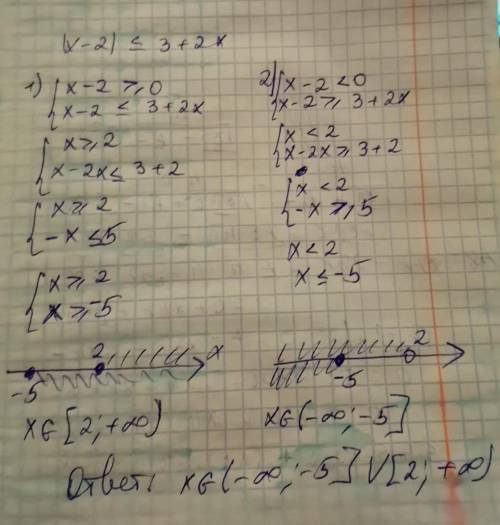 |x-2| ≤ 3+2x
1) { x-2 ≥ 0
x-2 ≤ 3+2x
{ x ≥ 2
x-2x ≤ 3+2
{ x ≥ 2
-x ≤ 5
{ x ≥ 2
x ≥ -5
-5 2 x
x∈[2; +∞)
2) { x-2 < 0
x-2 ≥ 3+2x
{ x < 2
x-2x ≥ 3+2
{ x < 2
-x ≥ 5
x < 2
x ≤ -5
-5 2
x∈(-∞; -5]
Ответ: x∈(-∞; -5] V [2; +∞)